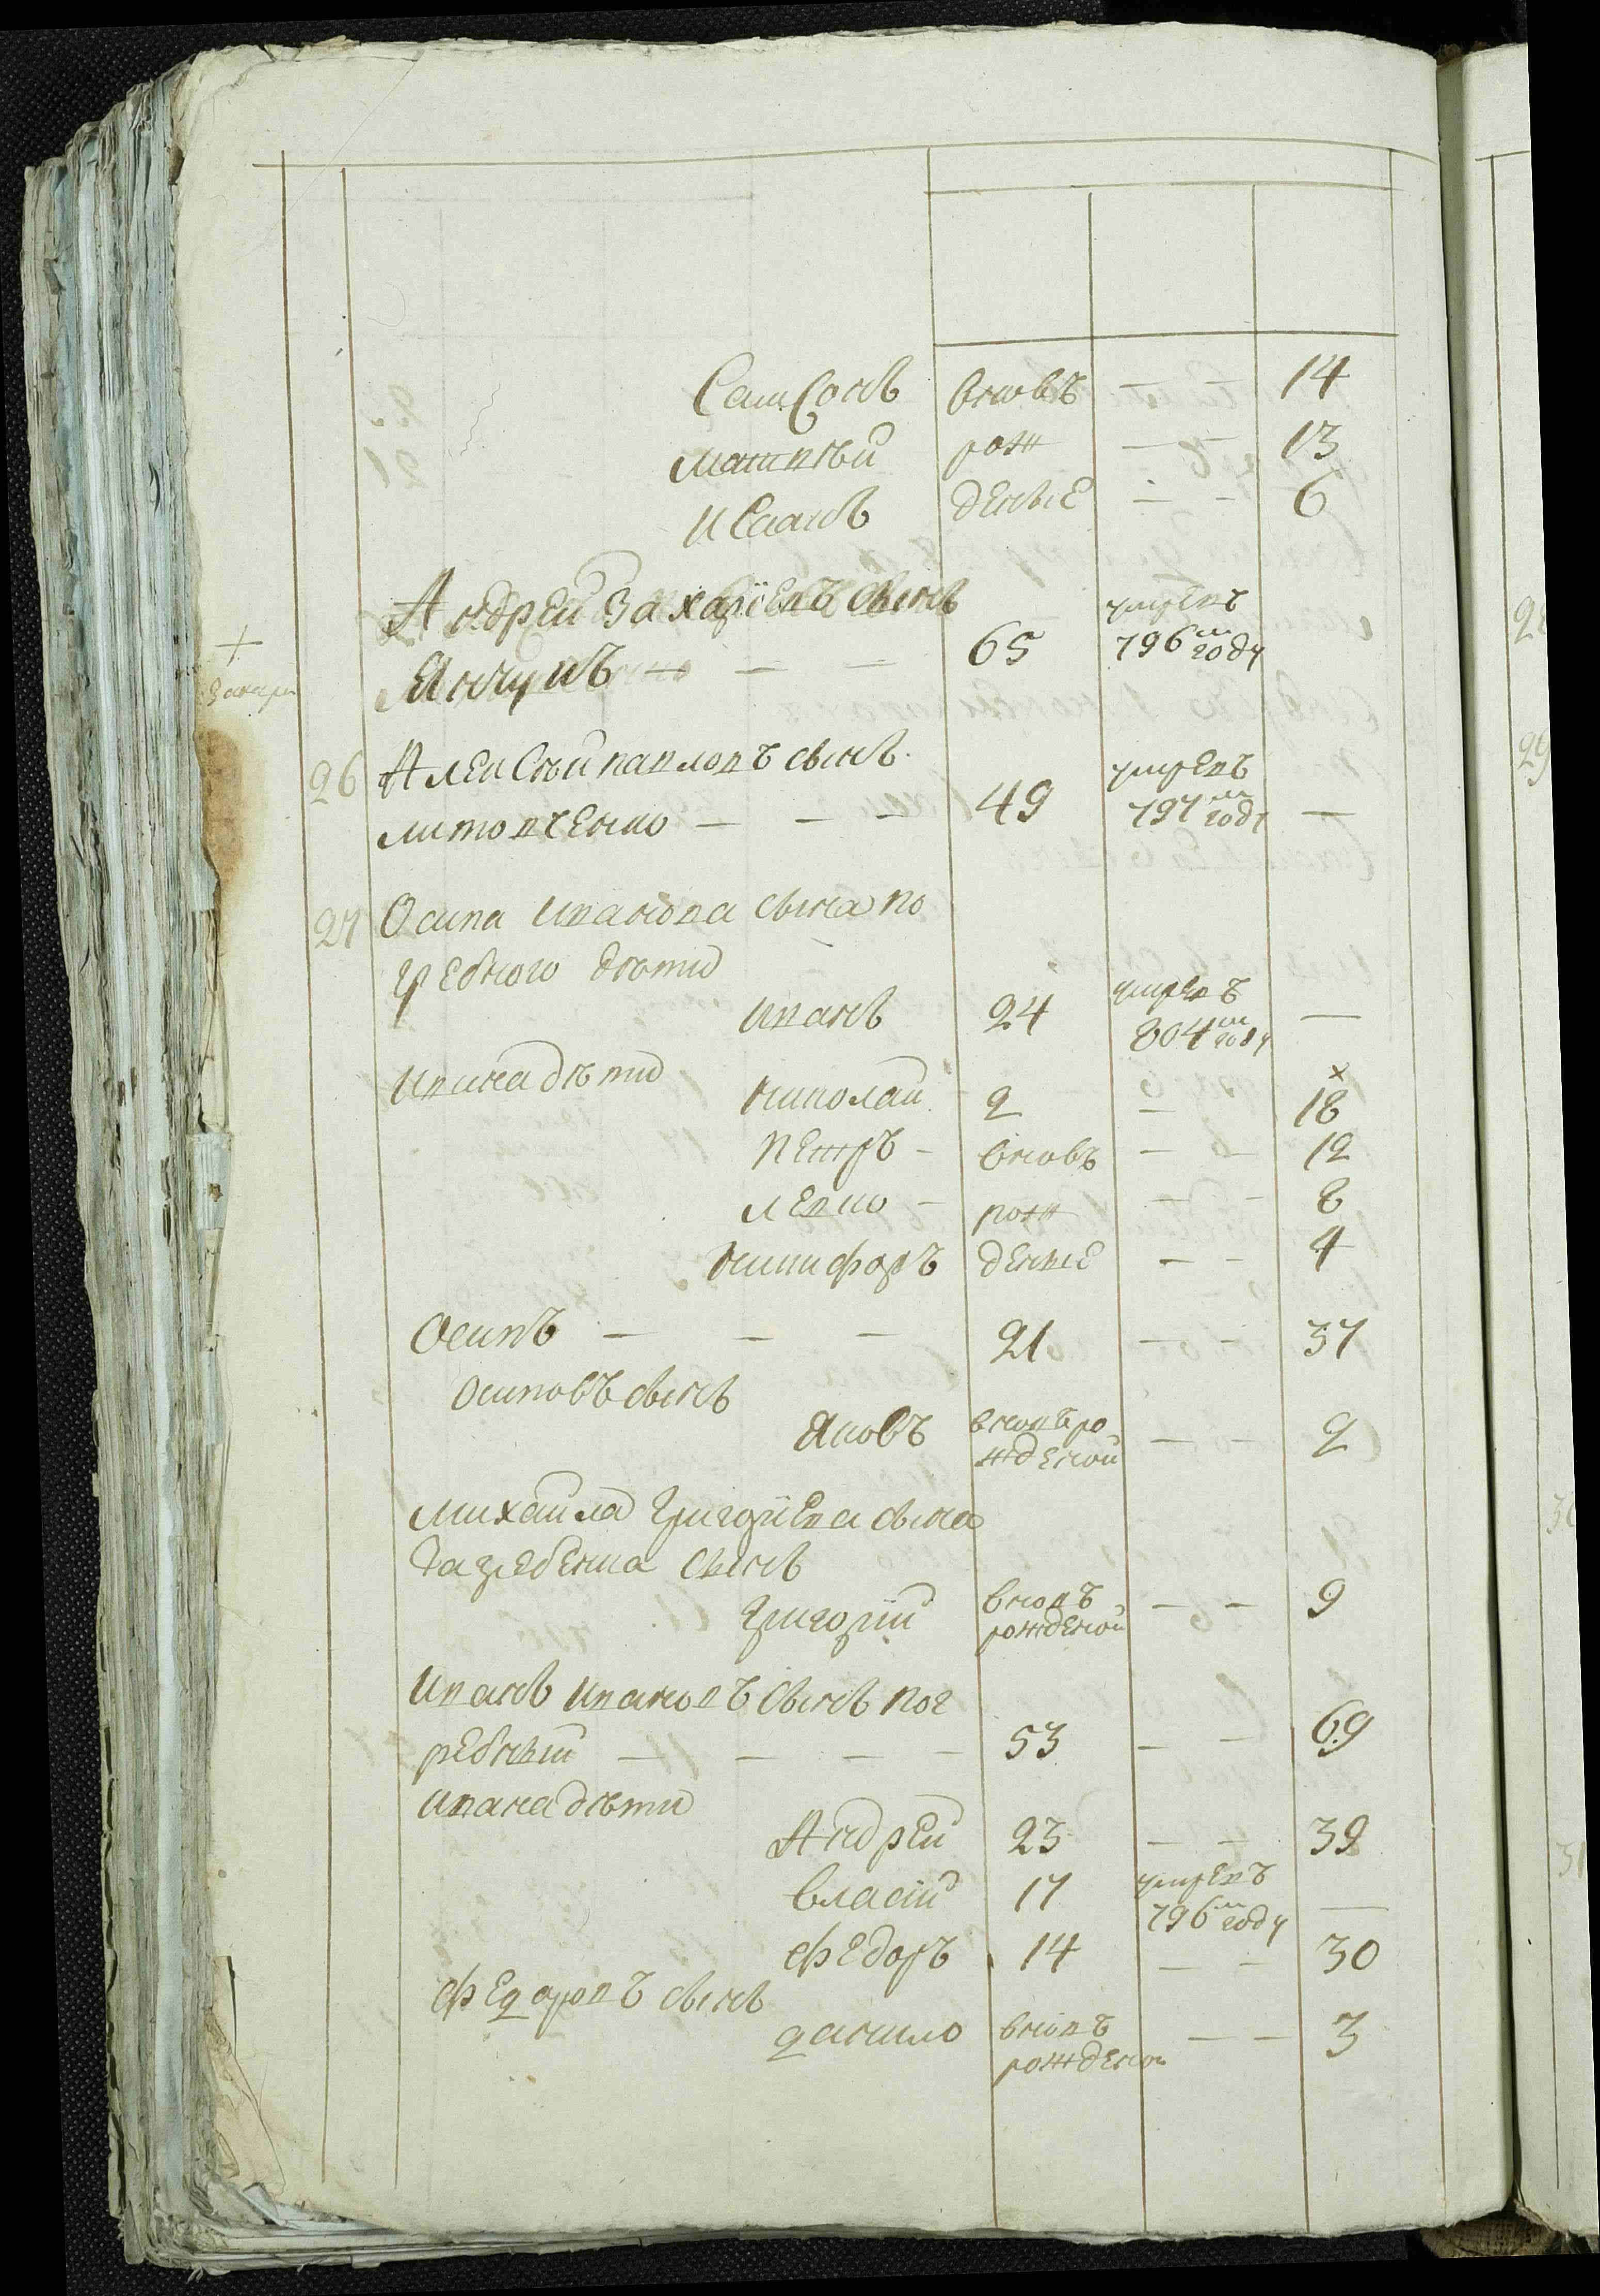 Самсонъ вновъ — — 14
Матвѣй рож — — 13
Исаакъ деные — — 6
Андрей Захаріевъ сынъ умревъ
Янчукъ — — — 65 796м году
26 Алексѣй павловъ сынъ умревъ
литовченко — — — 49 797м году —
27 Осипа Иванова сына по
гребного дѣти
Иванъ 24 умревъ 804м году —
Ивана дѣти Николай 2 — 18
Петръ — вновъ — — 12
Левко — рож — — 8
Никифоръ деные — — 4
Осипъ — — — 21 — — 37
Осиповъ сынъ
Яковъ вновъ ро
жденой — — 2
Михайла Григоріева сына
сынъ
Григорій вновъ рожденой — — 9
Иванъ Ивановъ сынъ пог
ребный — — — — 53 — — 69
Ивана дѣти
Андрей 23 — — 39
Власій 17 умревъ 796м году —
Федоръ 14 — — 30
Федоровъ сынъ
данило вновъ рожденой — — 3